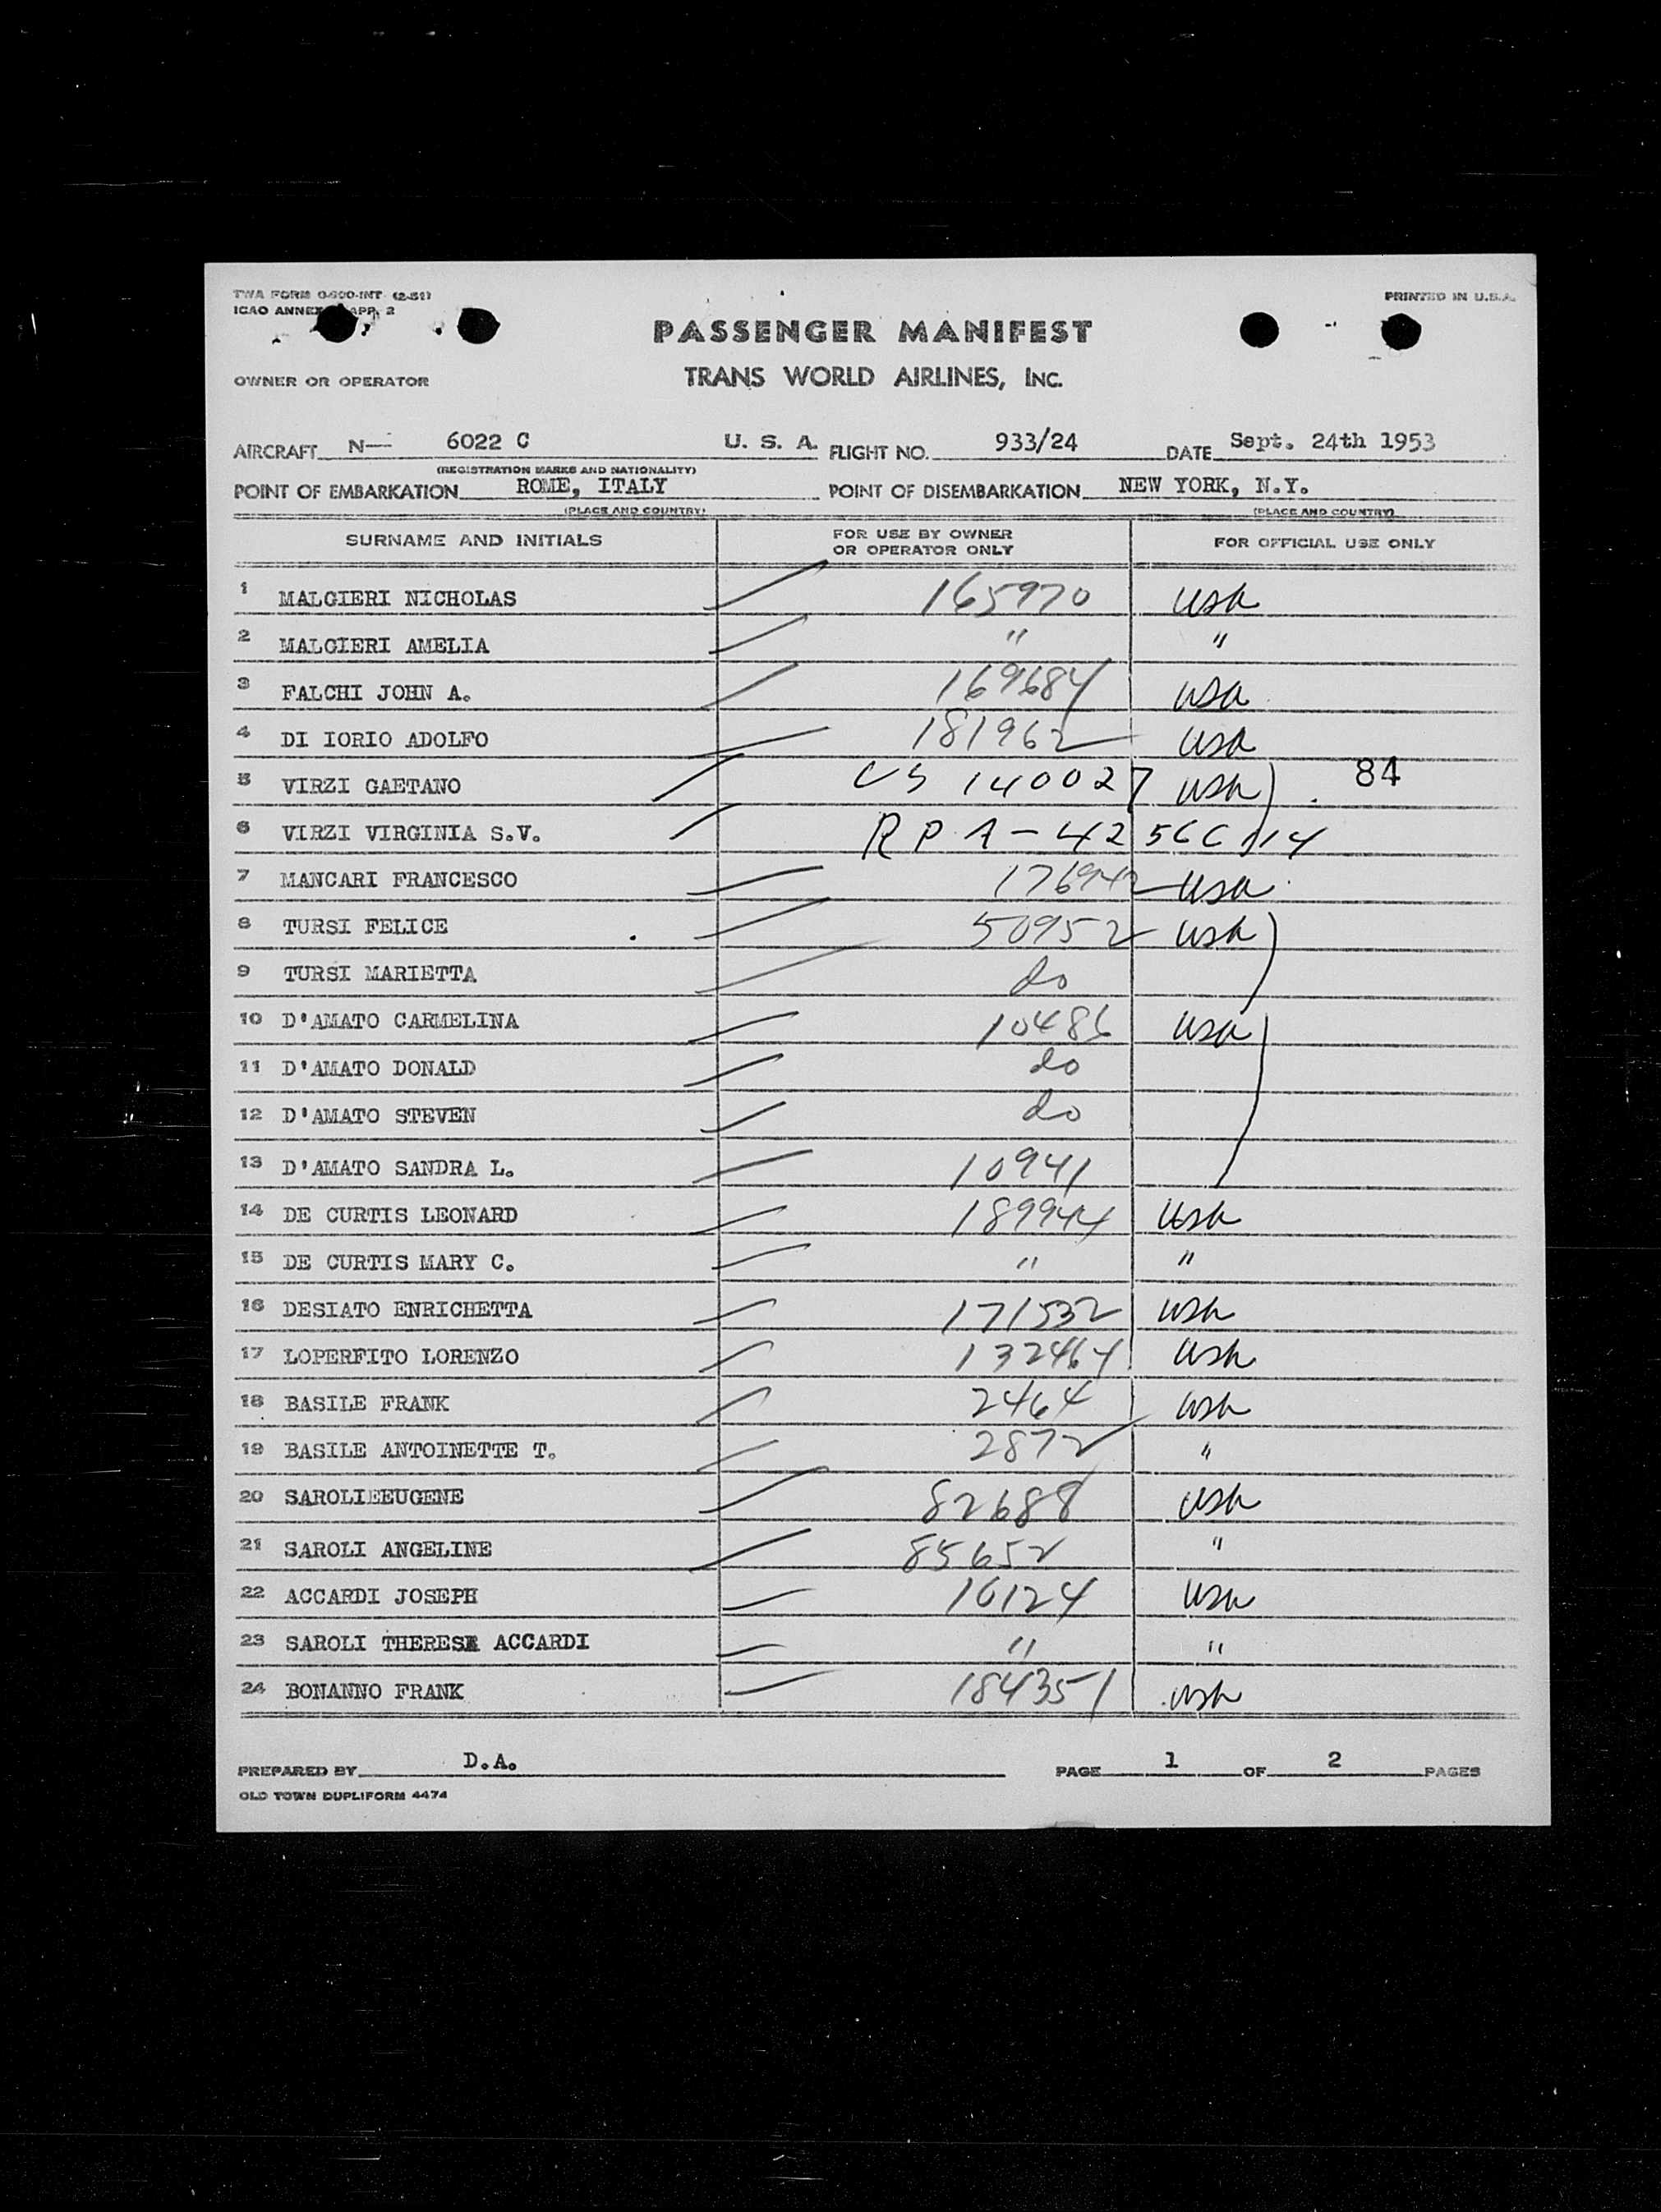 TWA FORM O-600-INT (2-51)
PRINTED IN U.S.A.
ICAO ANNEX APP. 2
PASSENGER MANIFEST
OWNER OR OPERATOR
TRANS WORLD AIRLINES, INC.
AIRCRAFT N— 6022 C U. S. A. FLIGHT NO. 933/24 DATE Sept. 24th 1953
(REGISTRATION MARKS AND NATIONALITY)
POINT OF EMBARKATION ROME, ITALY POINT OF DISEMBARKATION NEW YORK, N.Y.
(PLACE AND COUNTRY) (PLACE AND COUNTRY)
SURNAME AND INITIALS FOR USE BY OWNER OR OPERATOR ONLY FOR OFFICIAL USE ONLY
1 MALGIERI NICHOLAS 165970 usa
2 MALGIERI AMELIA " "
3 FALCHI JOHN A. 169684 usa
4 DI IORIO ADOLFO 181962 usa
5 VIRZI GAETANO US 140027 usa) 84
6 VIRZI VIRGINIA S.V. RPA-42566
7 MANCARI FRANCESCO 176942 usa
8 TURSI FELICE 50952 usa)
9 TURSI MARIETTA do
10 D'AMATO CARMELINA 10486 usa)
11 D'AMATO DONALD do
12 D'AMATO STEVEN do
13 D'AMATO SANDRA L. 10941
14 DE CURTIS LEONARD 189944 usa
15 DE CURTIS MARY C. " "
16 DESIATO ENRICHETTA 171532 usa
17 LOPERFITO LORENZO 132464 usa
18 BASILE FRANK 2464 usa
19 BASILE ANTOINETTE T. 2872 "
20 SAROLIEEUGENE 82688 usa
21 SAROLI ANGELINE 85652 "
22 ACCARDI JOSEPH 16124 usa
23 SAROLI THERESE ACCARDI " "
24 BONANNO FRANK 184351 usa
PREPARED BY D.A. PAGE 1 OF 2 PAGES
OLD TOWN DUPLIFORM 4474